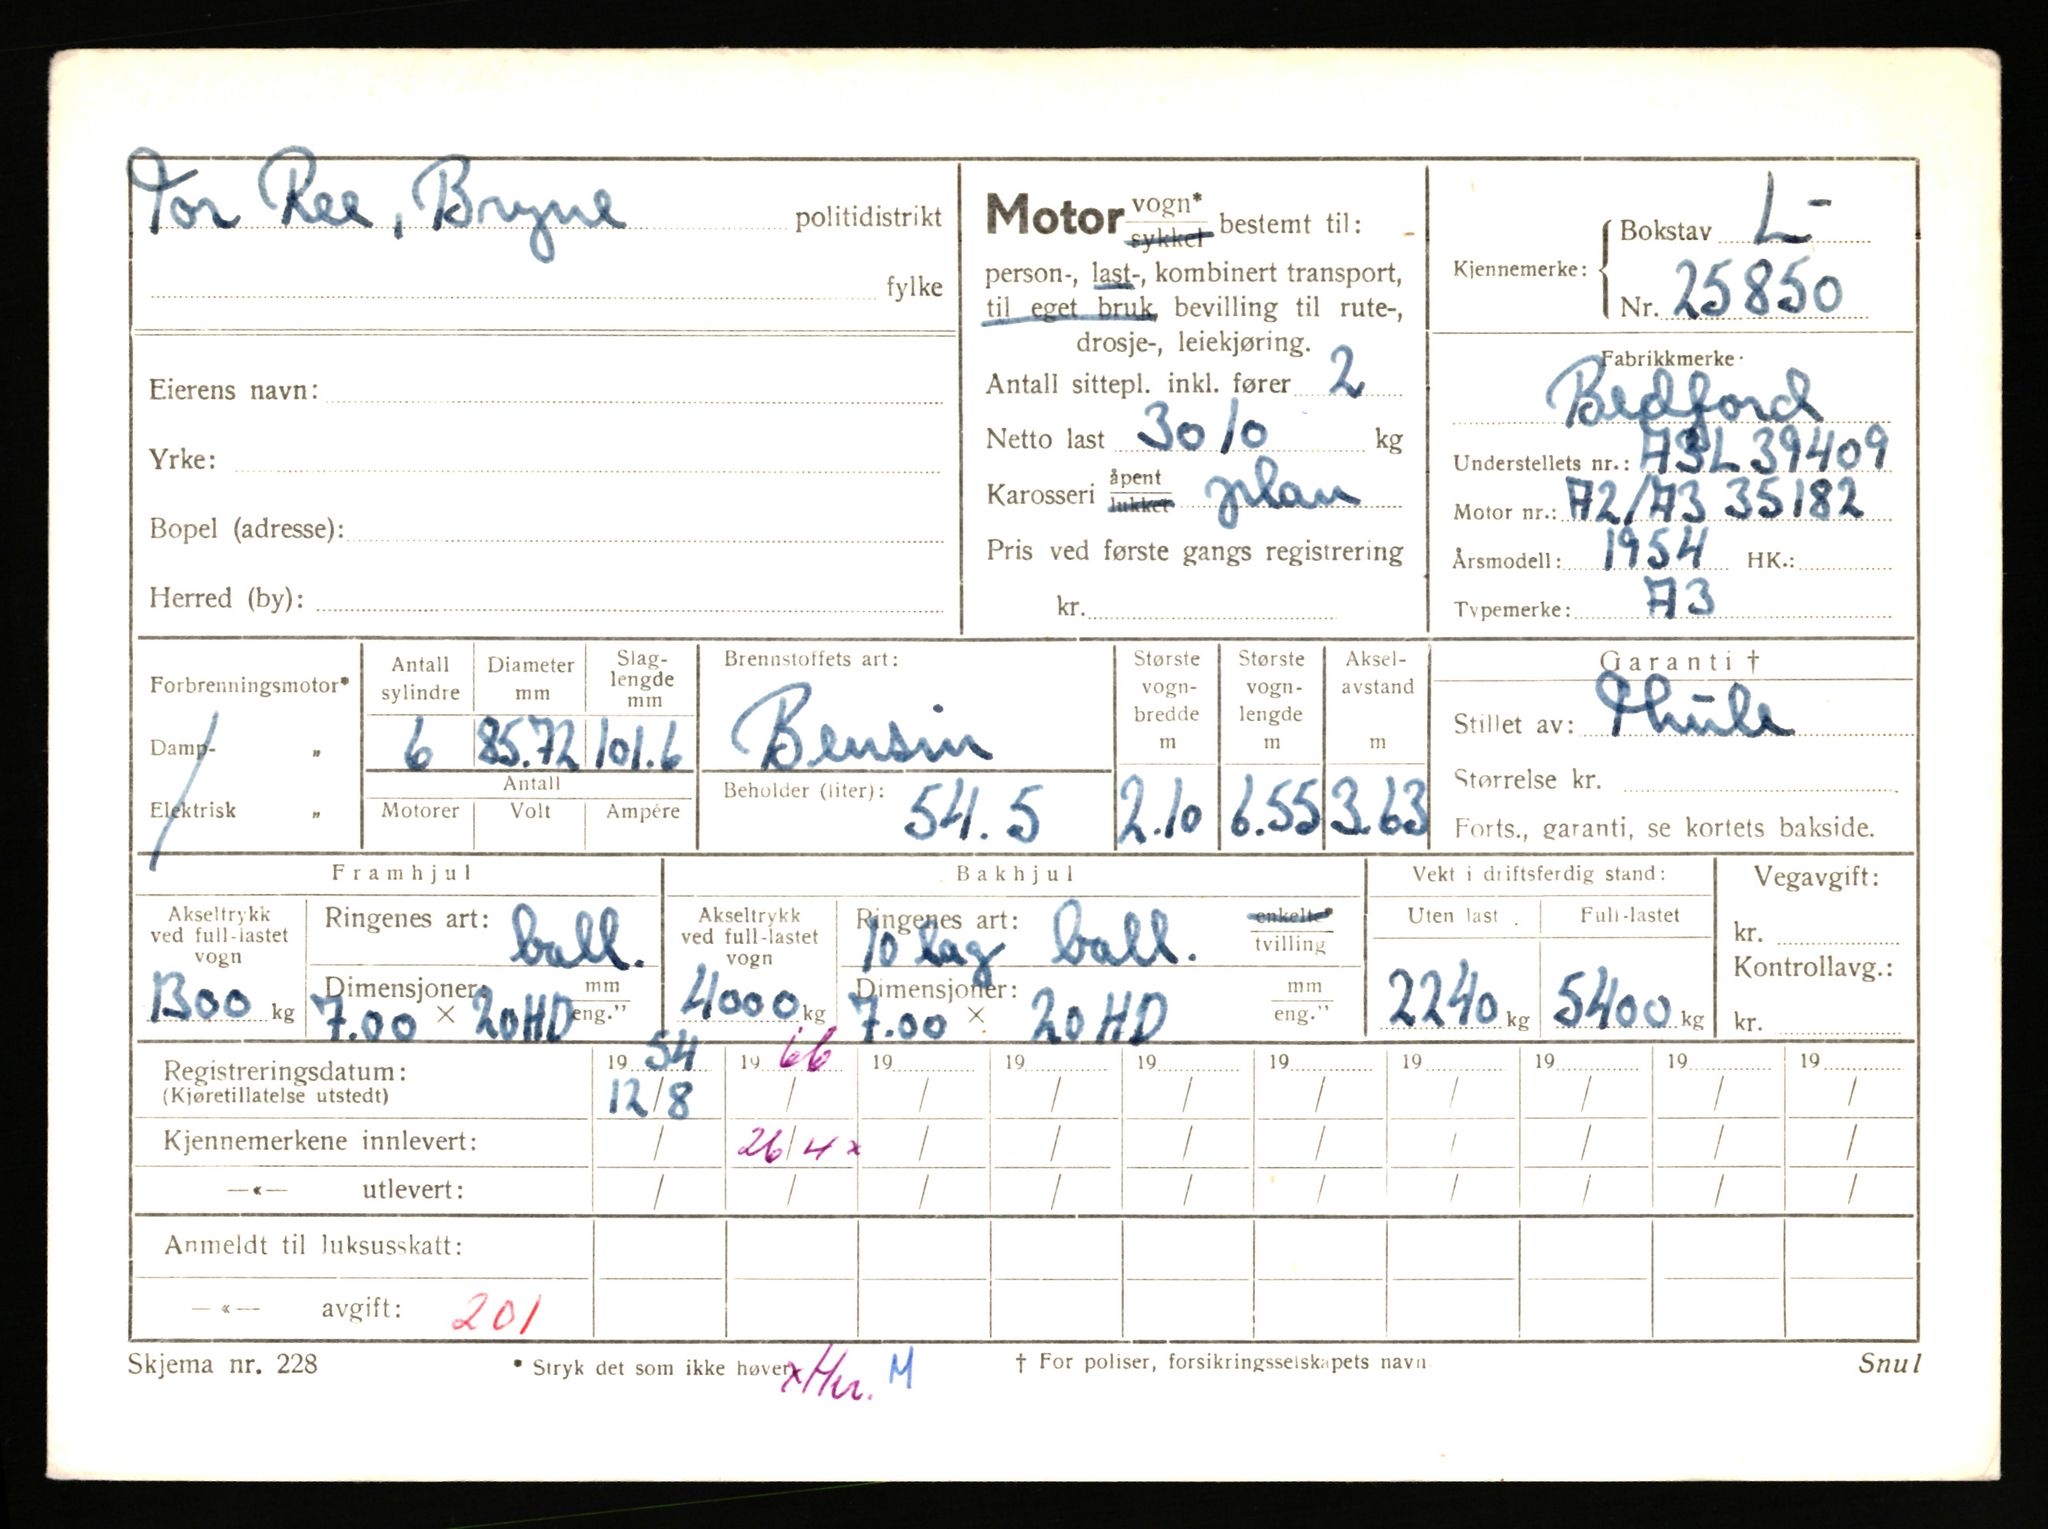 Tor Ree, Bryne politidistrikt
fylke
Eierens navn:
Yrke:
Bopel (adresse):
Herred (by):
Motor vogn* sykkel bestemt til:
person-, last-, kombinert transport,
til eget bruk, bevilling til rute-,
drosje-, leiekjøring.
Antall sittepl. inkl. fører 2
Netto last 3010 kg
Karosseri åpent lukket plan
Pris ved første gangs registrering
kr.
Kjennemerke: Bokstav L-
Nr. 25850
Fabrikkmerke.
Bedford
Understellets nr.: A3L 39409
Motor nr.: A2/A3 35182
Årsmodell: 1954 HK.:
Typemerke: A3
Forbrenningsmotor*
Damp- „
Elektrisk „
Antall sylindre
6
Diameter mm
85.72
Slag-lengde mm
101.6
Antall
Motorer Volt Ampére
Brennstoffets art:
Bensin
Beholder (liter): 54.5
Største vogn-bredde m
2.10
Største vogn-lengde m
6.55
Aksel-avstand m
3.63
Garanti †
Stillet av: Thule
Størrelse kr.
Forts., garanti, se kortets bakside.
Framhjul
Akseltrykk ved full-lastet vogn
kg
Ringenes art: ball.
Dimensjoner: mm
7.00 × 20HD eng."
Bakhjul
Akseltrykk ved full-lastet vogn
4000 kg
Ringenes art: enkelte* tvilling
10 lag ball.
Dimensjoner: mm
7.00 × 20 HD eng."
Vekt i driftsferdig stand:
Uten last
2240 kg
Full-lastet
5400 kg
Vegavgift:
kr.
Kontrollavg.:
kr.
Registreringsdatum: 19 54 19 66 19 19 19 19 19 19 19 19
(Kjøretillatelse utstedt) 12/8 / / / / / / / / /
Kjennemerkene innlevert: / 26/4 x / / / / / / / /
—«— utlevert: / / / / / / / / / /
Anmeldt til luksusskatt:
—«— avgift: 201
Skjema nr. 228 * Stryk det som ikke høver. † For poliser, forsikringsselskapets navn Snul
M